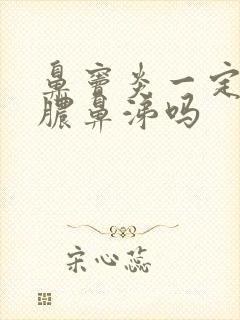 鼻窦炎一定
脓鼻涕吗
宋心蕊